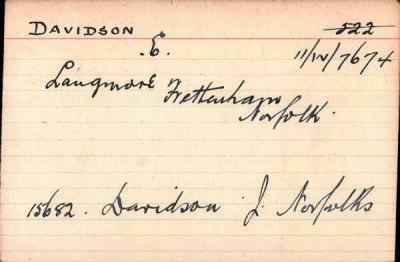 DAVIDSON 522
.E. 11/IV/7674
Langmore Frettenham
Norfolk.
15682. Davidson J. Norfolks